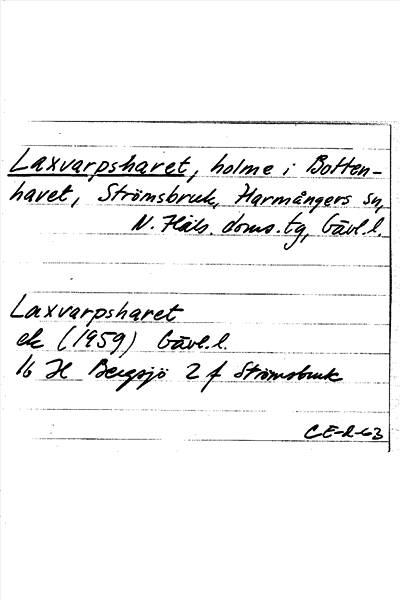 Laxvarpsharet, holme i Botten-
havet, Strömsbruk, Harmångers sn,
N. Häls. doms. tg, Gävl.l.
Laxvarpsharet
ek (1959) Gävl.l.
16 H Bergsjö 2 f Strömsbruk
CE-R-63